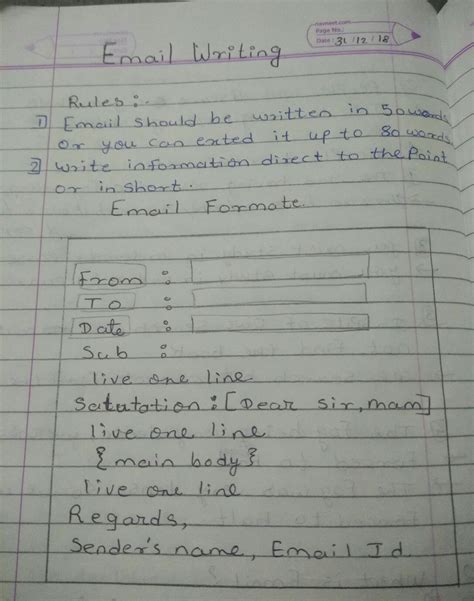 navneet.com
Page No.:
Date: 31/12/18
Email Writing
Rules :-
1) Email should be written in 50 words
or you can exted it up to 80 words
2) Write information direct to the Point
or in short.
Email Formate
From :
To :
Date :
Sub :
live one line
Satutation : [Dear Sir, mam]
live one line
{main body}
live one line
Regards,
Sender's name, Email Id